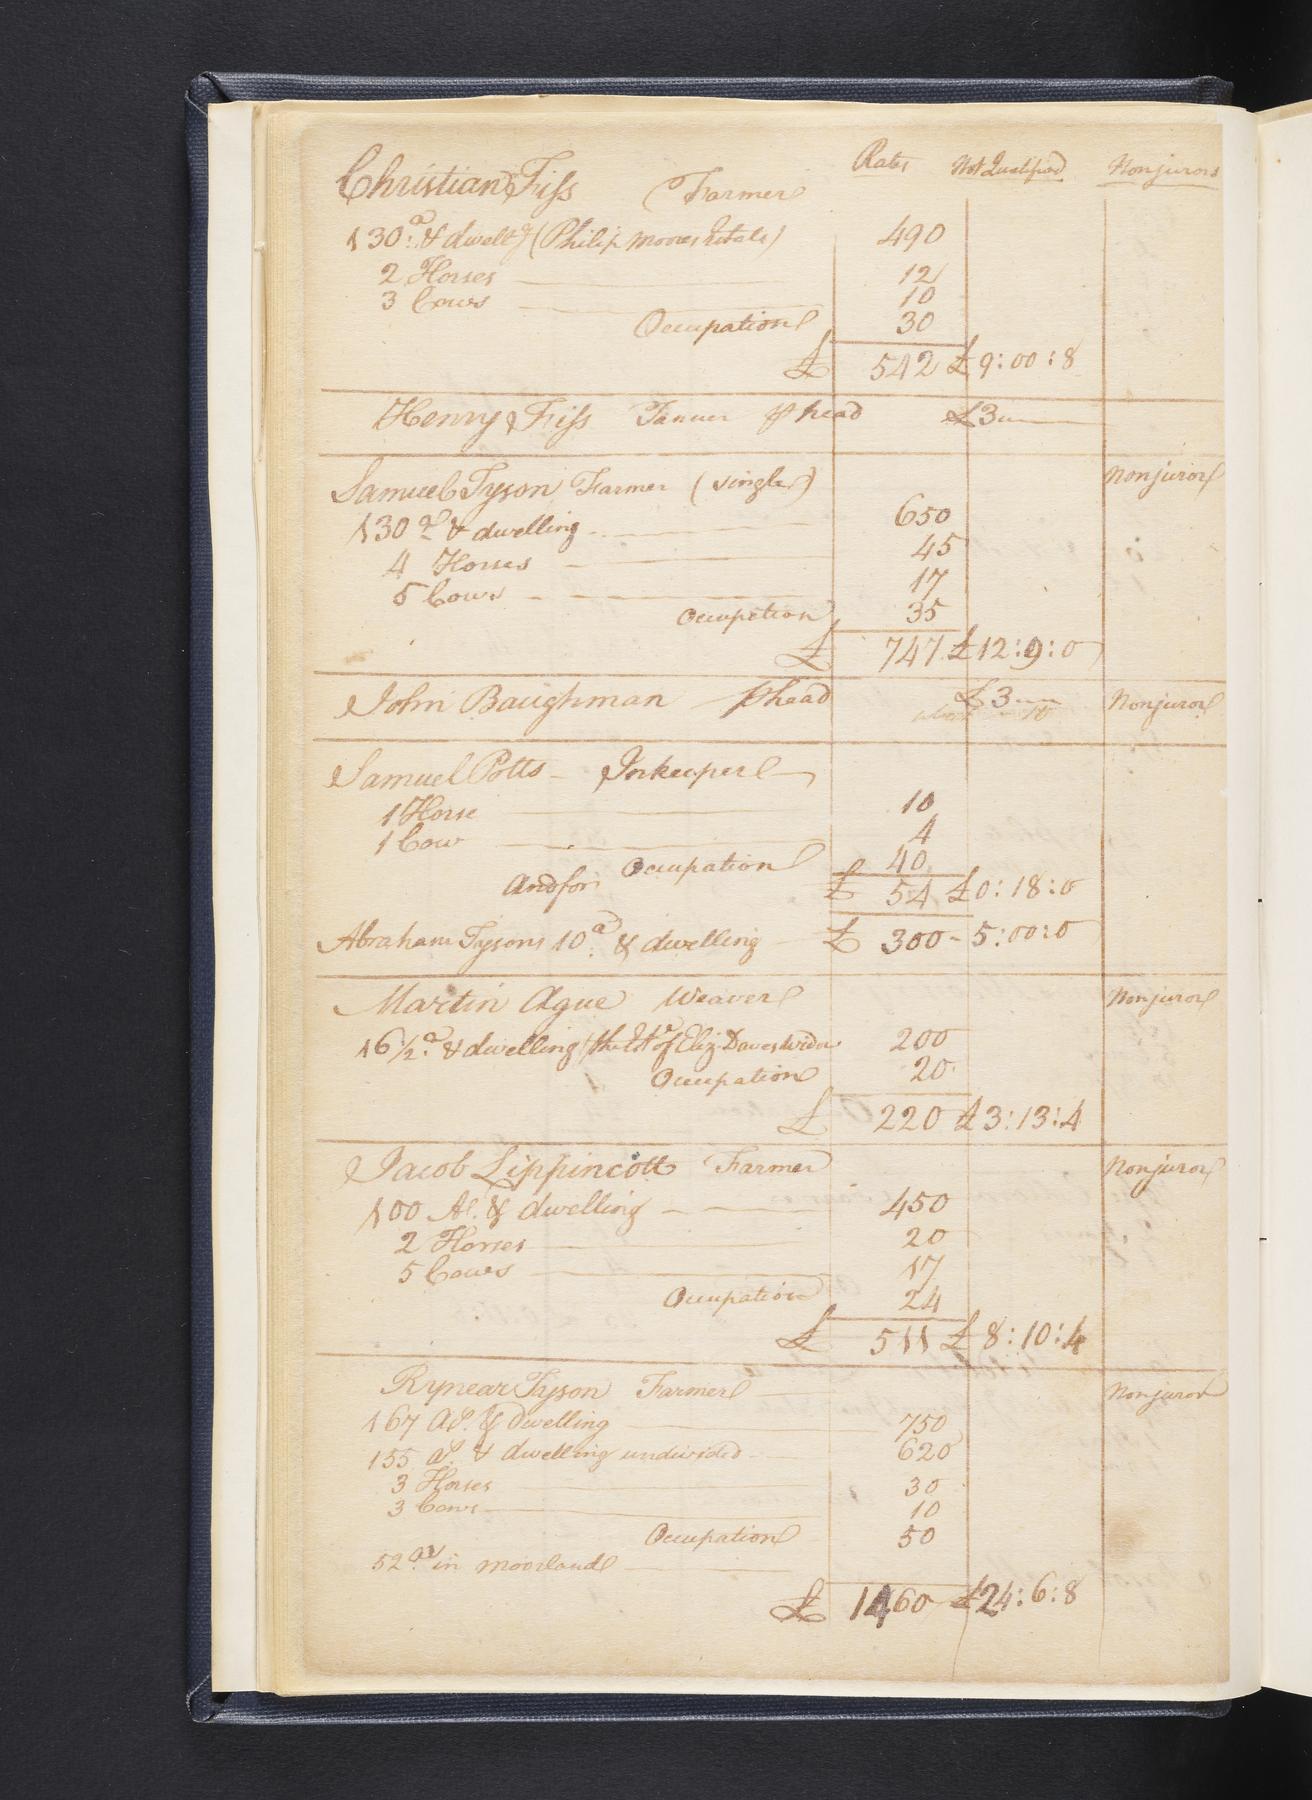 Rates Not Qualified Nonjurors
Christian Fiss (Farmer
130a. & dwellg (Philip Moores Estate) 490
2 Horses 12
3 Cows 10
Occupation 30
£ 542 £9:00:8
Henry Fiss Tanner p head £3
Samuel Tyson Farmer (single) Nonjuror
130 as & dwelling 650
4 Horses 45
5 Cows 17
Occupation 35
£ 747 £12:9:0
John Baughman p head £3 Nonjuror
Samuel Potts Inkeeper
1 Horse 10
1 Cow 4
Occupation 40
And for £ 54 £0:18:0
Abraham Tysons 10a. & dwelling £ 300 - 5:00:0
Martin Ague Weaver Nonjuror
16 1/2a. & dwelling / the Este of Eliz. Daves Widow 200
Occupation 20
£ 220 £3:13:4
Jacob Lippincott Farmer Nonjuror
100 As. & dwelling 450
2 Horses 20
5 Cows 17
Occupation 24
£ 511 £8:10:4
Rynear Tyson Farmer Nonjuror
167 As. & Dwelling 750
155 as. & dwelling undivided 620
3 Horses 30
3 Cows 10
Occupation 50
52 as in Moorland
£ 1460 £24:6:8